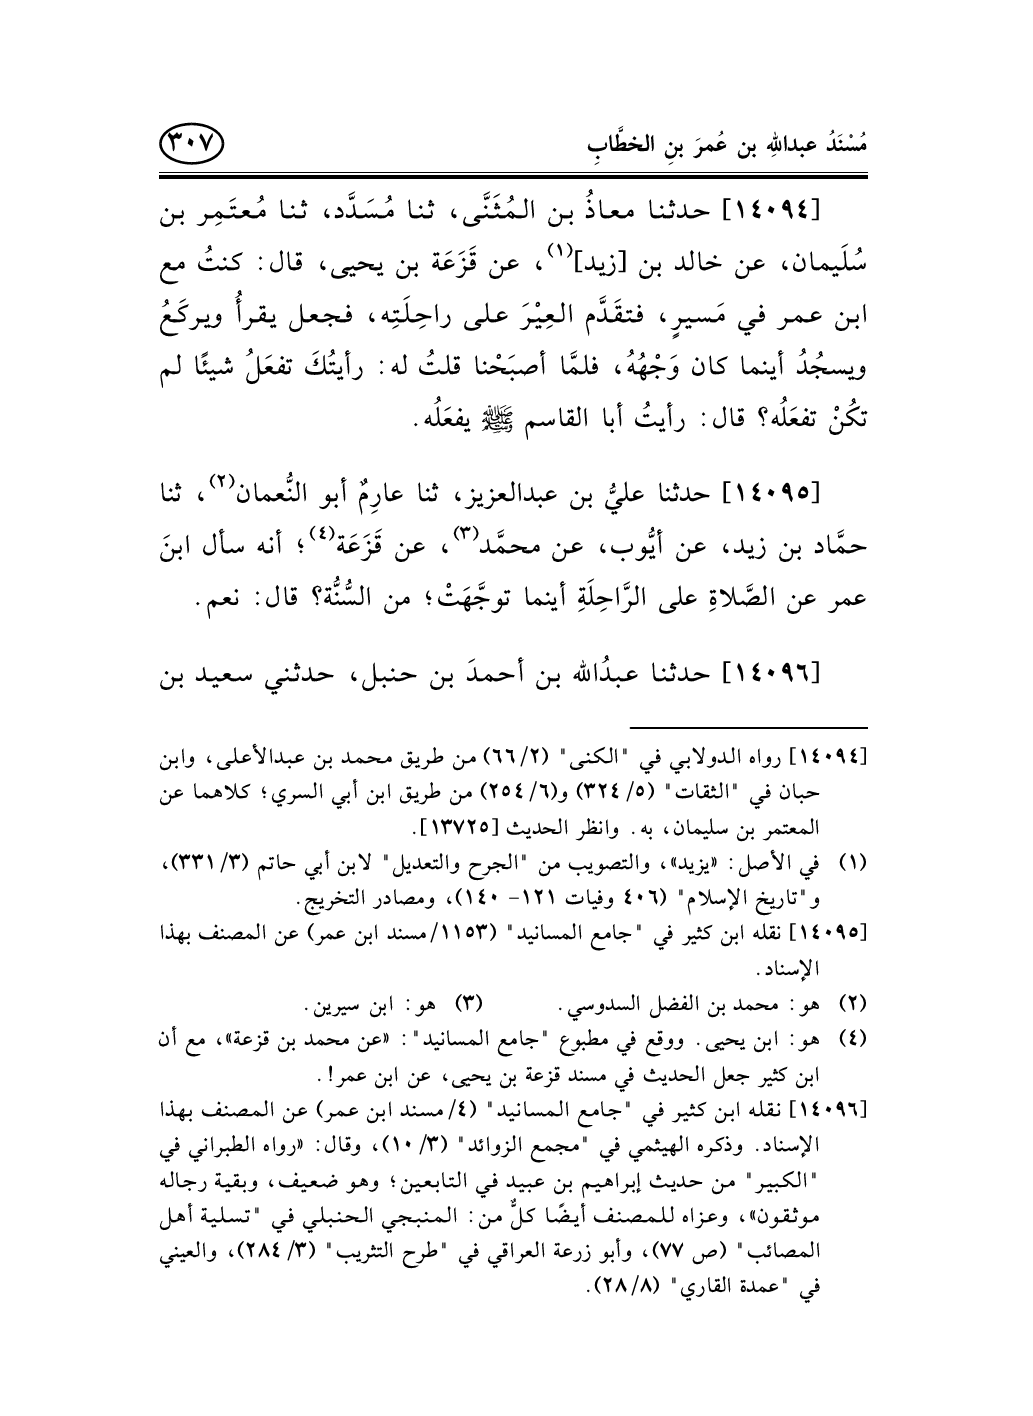 مُسْنَدُ عبداللهِ بن عُمرَ بنِ الخطَّابِ
٣٠٧
[١٤٠٩٤] حدثنا معاذُ بن المُثَنَّى، ثنا مُسَدَّد، ثنا مُعتَمِر بن
سُلَيمان، عن خالد بن [زيد](١)، عن قَزَعَة بن يحيى، قال: كنتُ مع
ابن عمر في مَسيرٍ، فتقَدَّم العِيْرَ على راحِلَتِه، فجعل يقرأُ ويركَعُ
ويسجُدُ أينما كان وَجْهُهُ، فلمَّا أصبَحْنا قلتُ له: رأيتُكَ تفعَلُ شيئًا لم
تكُنْ تفعَلُه؟ قال: رأيتُ أبا القاسم ﷺ يفعَلُه.
[١٤٠٩٥] حدثنا عليُّ بن عبدالعزيز، ثنا عارِمٌ أبو النُّعمان(٢)، ثنا
حمَّاد بن زيد، عن أيُّوب، عن محمَّد(٣)، عن قَزَعَة(٤)؛ أنه سأل ابنَ
عمر عن الصَّلاةِ على الرَّاحِلَةِ أينما توجَّهَتْ؛ من السُّنُّة؟ قال: نعم.
[١٤٠٩٦] حدثنا عبدُالله بن أحمدَ بن حنبل، حدثني سعيد بن
[١٤٠٩٤] رواه الدولابي في "الكنى" (٢/ ٦٦) من طريق محمد بن عبدالأعلى، وابن
حبان في "الثقات" (٥/ ٣٢٤) و(٦/ ٢٥٤) من طريق ابن أبي السري؛ كلاهما عن
المعتمر بن سليمان، به. وانظر الحديث [١٣٧٢٥].
(١) في الأصل: «يزيد»، والتصويب من "الجرح والتعديل" لابن أبي حاتم (٣/ ٣٣١)،
و"تاريخ الإسلام" (٤٠٦ وفيات ١٢١- ١٤٠)، ومصادر التخريج.
[١٤٠٩٥] نقله ابن كثير في "جامع المسانيد" (١١٥٣/مسند ابن عمر) عن المصنف بهذا
الإسناد.
(٢) هو: محمد بن الفضل السدوسي. (٣) هو: ابن سيرين.
(٤) هو: ابن يحيى. ووقع في مطبوع "جامع المسانيد": «عن محمد بن قزعة»، مع أن
ابن كثير جعل الحديث في مسند قزعة بن يحيى، عن ابن عمر!.
[١٤٠٩٦] نقله ابن كثير في "جامع المسانيد" (٤/ مسند ابن عمر) عن المصنف بهذا
الإسناد. وذكره الهيثمي في "مجمع الزوائد" (٣/ ١٠)، وقال: «رواه الطبراني في
"الكبير" من حديث إبراهيم بن عبيد في التابعين؛ وهو ضعيف، وبقية رجاله
موثقون»، وعزاه للمصنف أيضًا كلٌّ من: المنبجي الحنبلي في "تسلية أهل
المصائب" (ص ٧٧)، وأبو زرعة العراقي في "طرح التثريب" (٣/ ٢٨٤)، والعيني
في "عمدة القاري" (٨/ ٢٨).